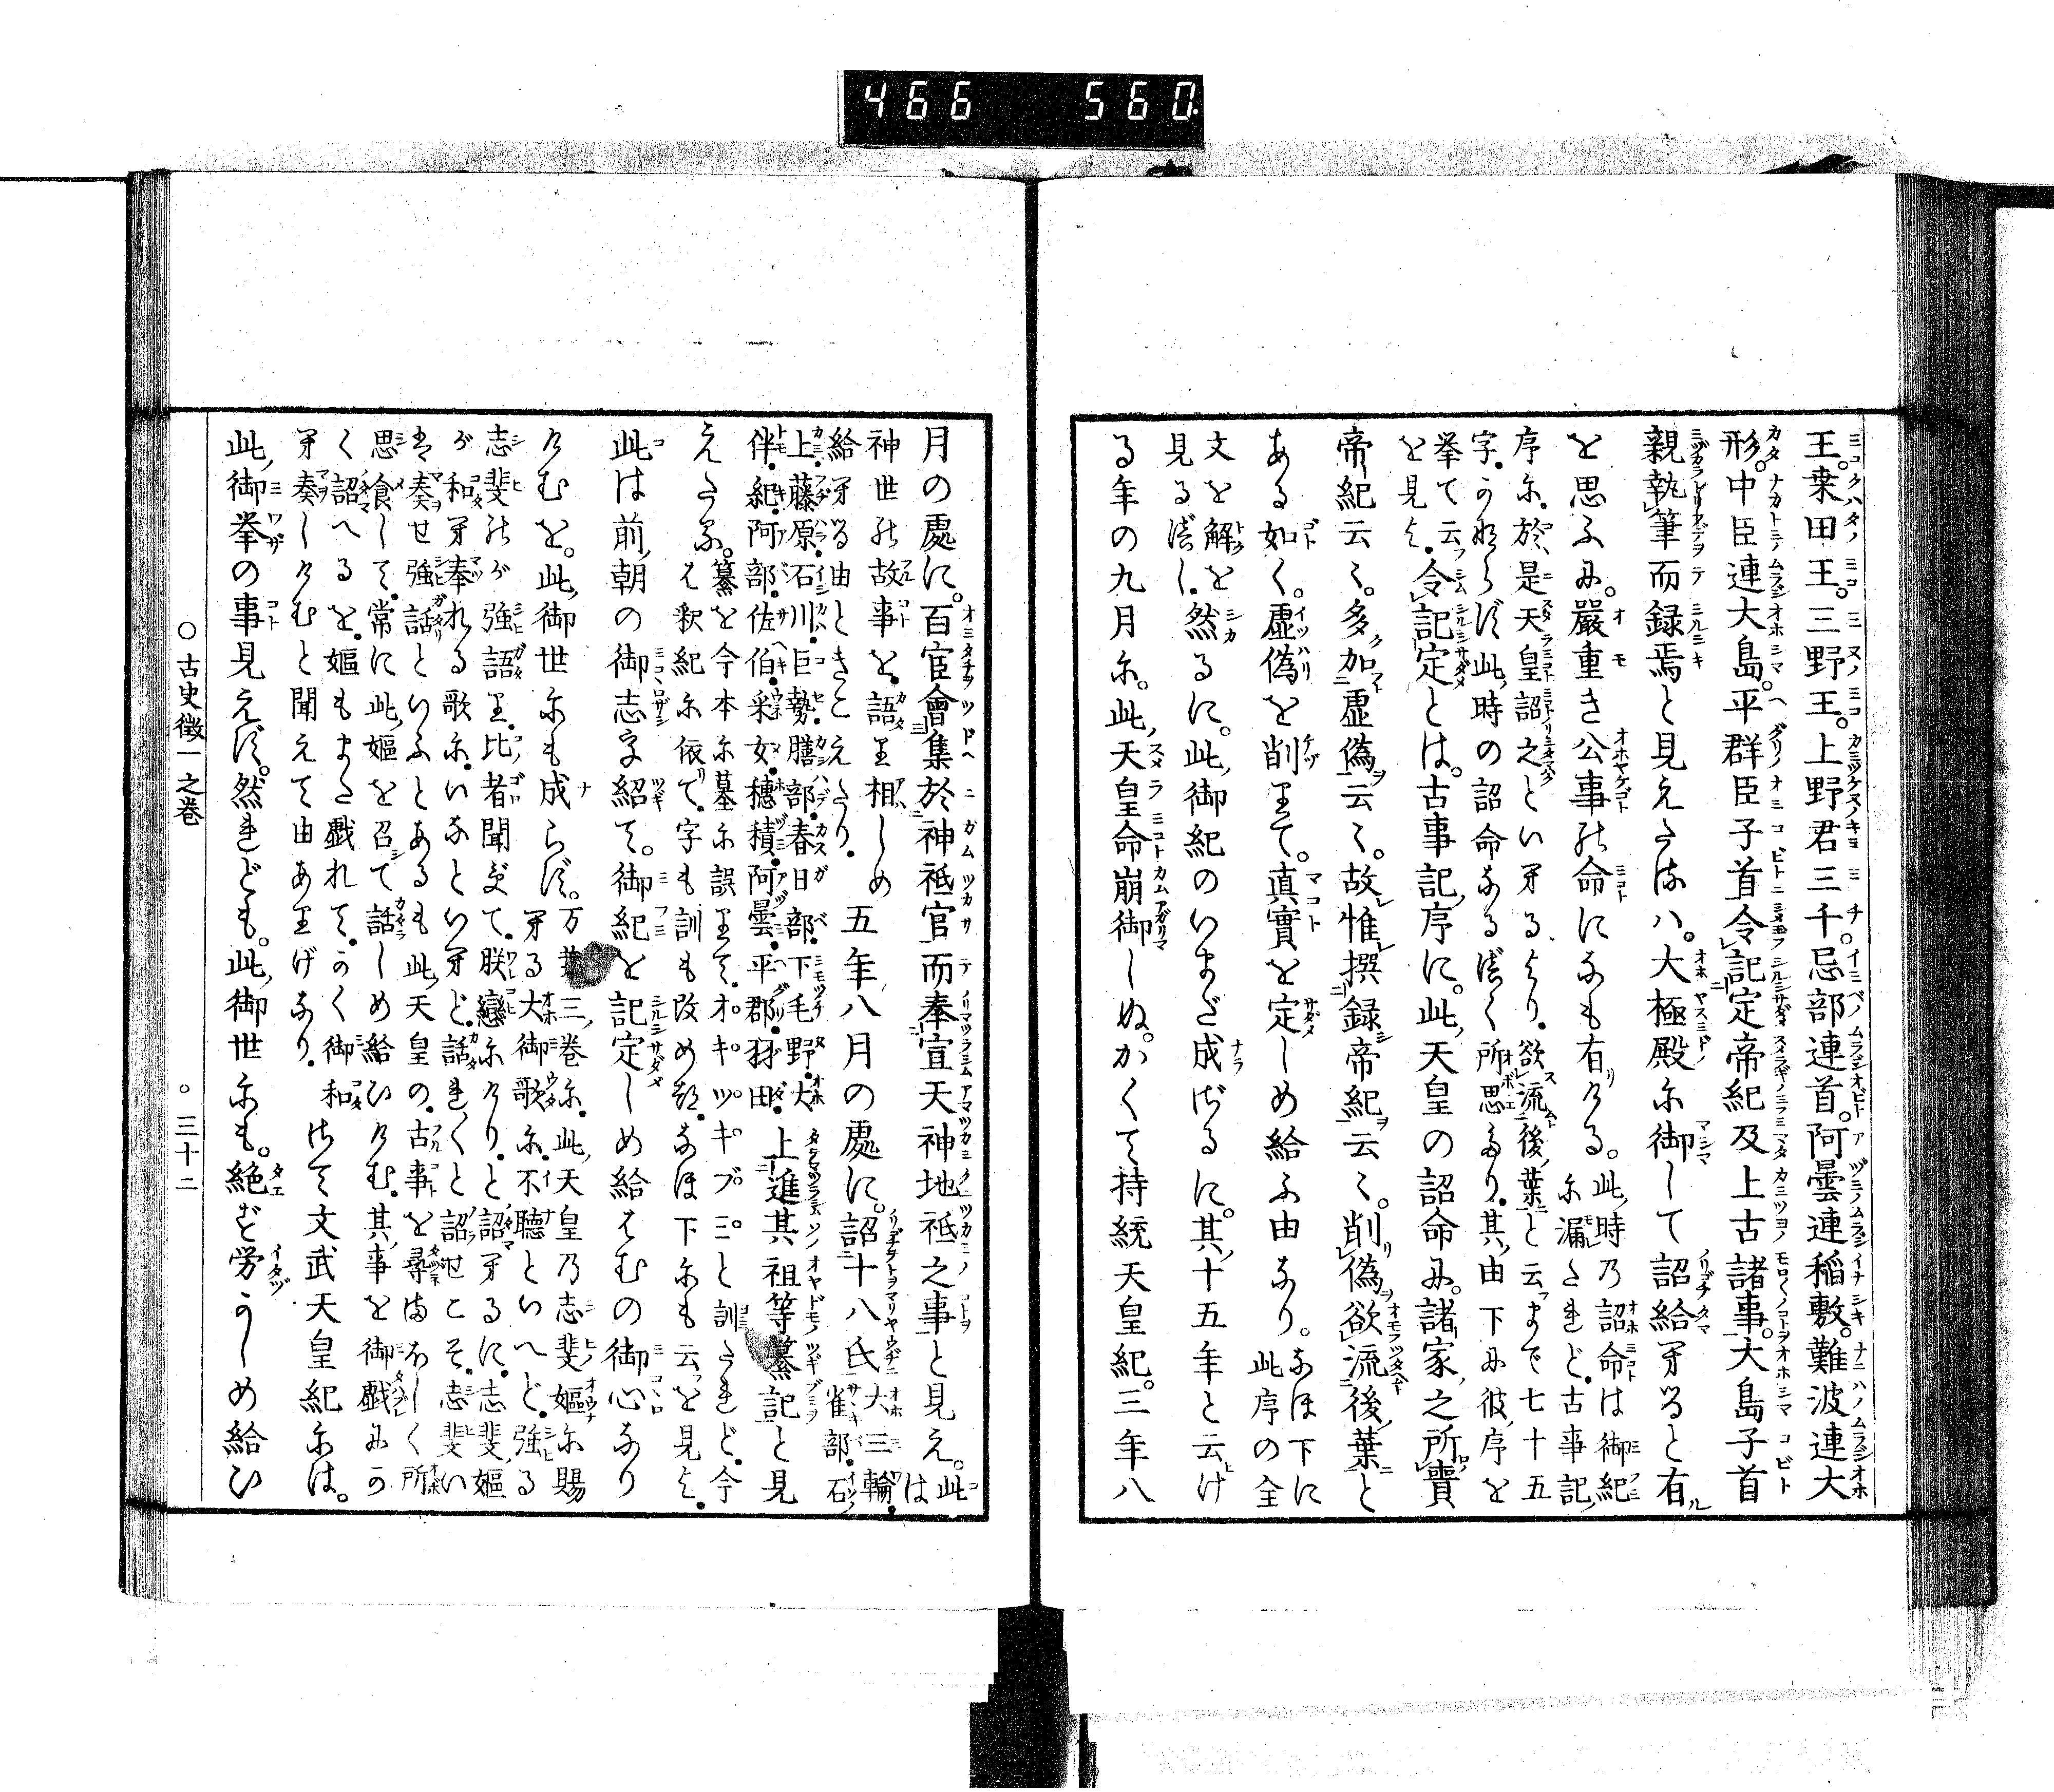 466 560
王。桒田王。三野王。上野君三千。忌部連首。阿曇連稲敷。難波連大
形。中臣連大島。平群臣子首令記定帝紀及上古諸事。大島子首
親執筆而録焉と見えたれハ。大極殿尓御して詔給へると有
を思ふに。嚴重き公事の命になも有ける。此時乃詔命は御紀
尓漏たれど。古事記
序尓。於是天皇詔之といへるより。欲流後葉と云まで七十五
字。かならず此時の詔命なるべく所思たり。其由下に彼序を
挙て云。令記定とは。古事記序に。此天皇の詔命に。諸家之所賷
を見よ。
帝紀云々。多加虚偽云々。故惟撰録帝紀云々。削偽欲流後葉と
ある如く。虚偽を削りて。真實を定しめ給ふ由なり。なほ下に
此序の全
文を解を
見るべし。然るに。此御紀のいまだ成ざるに。其十五年と云け
る年の九月尓。此天皇命崩御しぬ。かくて持統天皇紀。三年八
月の處に。百官會集於神祇官而奉宣天神地祇之事と見え。此は
神世の故事を語り相しめ
給へる由ときこえたり。五年八月の處に。詔十八氏大三輪。
雀部。石
上。藤原。石川。巨勢。膳部。春日部。下毛野。大
伴。紀。阿部。佐伯。采女。穂積。阿曇。平郡。羽田。上進其祖等纂記と見
えたる。纂を今本尓墓尓誤りて。オキツキブミと訓たれど。今
は釈紀尓依て。字も訓も改めつ。なほ下尓も云を見よ。
此は前朝の御志字紹て。御紀を記定しめ給はむの御心なり
けむを。此御世尓も成らず。万葉三巻尓。此天皇乃志斐嫗尓賜
へる大御歌尓。不聴といへど。強る
志斐のが強語り。比者聞ずて。朕戀尓けり。と詔へるに。志斐嫗
が和へ奉れる歌尓。いなといへど。話れ〳〵と詔せこそ。志斐い
は奏せ強話といふとあるも此天皇の。古事を尋まほしく所
思食して。常に此嫗を召て話しめ給ひけむ。其事を御戯にか
く詔へるを。嫗もまた戯れて。かく御和
へ奏しけむと聞えて由ありげなり。さて文武天皇紀尓は。
此御挙の事見えず。然れども。此御世尓も。絶ず労かしめ給ひ
○古史徴一之巻 ○三十二